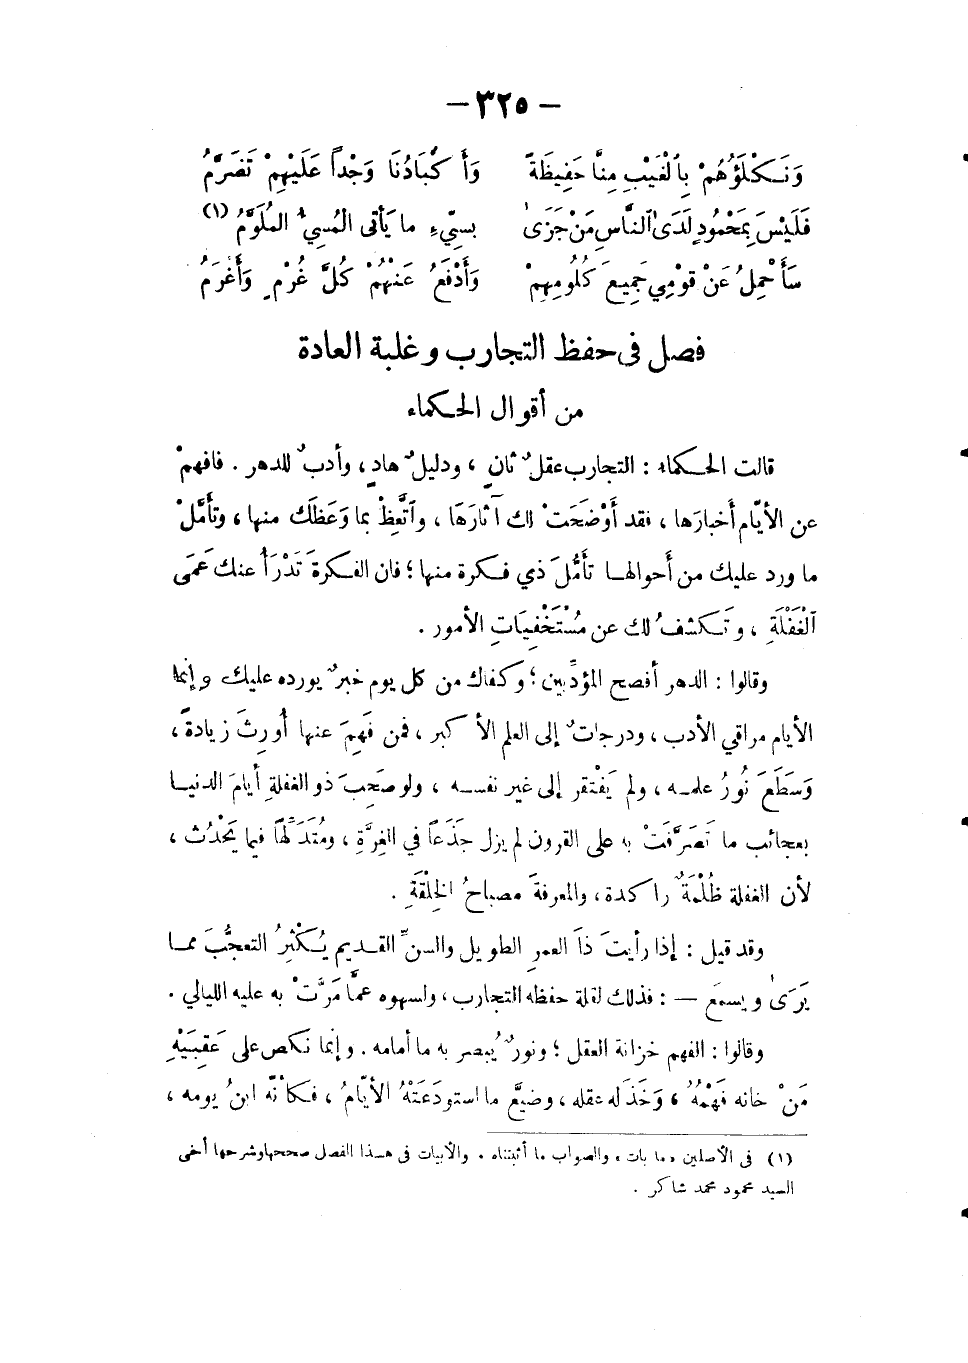 — ٣٢٥ —
وَنَكْلَؤُهُمْ بِٱلْغَيْبِ مِنَّا حَفِيظَةً وَأَكْبَادُنَا وَجْداً عَلَيْهِمْ تَضَرَّمُ
فَلَيْسَ بِمَحْمُودٍ لَدَى ٱلنَّاسِ مَنْ جَزَىٰ بسيِّءِ ما يَأتى المُسِيُ الملَوَّمُ (١)
سَأَحْمِلُ عَنْ قوْمِي جَمِيعَ كُلُومِهِمْ وَأَدْفَعُ عَنْهُمْ كُلَّ غُرْمٍ وَأَغْرَمُ
فصل فى حفظ التجارب وغلبة العادة
من أقوال الحكماء
قالت الحكماء : التجارب عقلٌ ثانٍ ، ودليلٌ هادٍ ، وأدبٌ للدهر . فافهمْ
عن الأيّام أخبارَها ، فقد أَوْضَحَتْ لك آثارَهَا ، وٱتَّعِظْ بما وَعَظَك منها ، وتأَمَّلْ
ما ورد عليك من أَحوالها تأَمُّلَ ذي فكرة منها ؛ فان الفكرةَ تَدْرَأُ عنك عَمَى
ٱلْغَفْلَةِ ، وتَكشفُ لك عن مُسْتَخْفِيَاتِ الأمور .
وقالوا : الدهر أفصح المؤدِّبين ؛ وكفاك من كل يوم خبرٌ يورده عليك وإنما
الأيام مراقي الأدب ، ودرجاتٌ إلى العلم الأكبر ، فمن فَهِمَ عنها أُورِثَ زيادةً ،
وَسَطَعَ نُورُ علمه ، ولم يَفْتقر إلى غير نفسه ، ولو صَحِبَ ذو الغفلةِ أيامَ الدنيا
بعجائب ما تَصَرَّفَتْ به على القرون لم يزل جَذَعاً في الغِرَّةِ ، ومُتَدَلِّهاً فيما يَحْدُث ،
لأن الغفلة ظُلْمَةٌ راكدة ، والمعرفةَ مصباحُ الخِلْقَةِ .
وقد قيل : إذا رأيتَ ذَا العمرِ الطويل والسنِّ القديم يُكْثِرُ التعجُّبَ مما
يَرَىٰ ويسمَع — : فذلك لقلة حفظه التجارب ، ولسهوه عمَّا مَرَّتْ به عليه الليالي .
وقالوا : الفهم خزانة العقل ؛ ونورٌ يُبصر به ما أمامه . وإنما نَكَص على عَقِبَيْهِ
مَنْ خانه فَهْمُهُ ، وَخَذَله عقله ، وضيَّع ما استودَعَتْهُ الأيّامُ ، فكأنّه ابنُ يومه ،
(١) فى الأصلين «ما بات» والصواب ما أثبتناه . والأبيات فى هذا الفصل صححها وشرحها أخى
السيد محمود محمد شاكر .